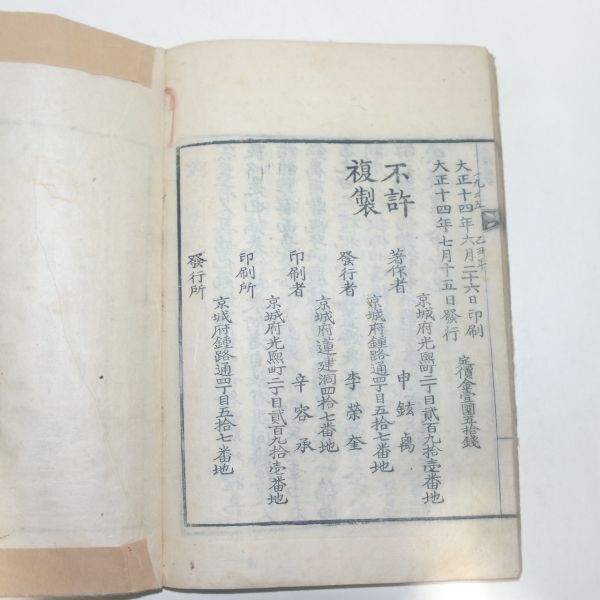 大正十四年六月二十六日印刷
大正十四年七月十五日發行
定價金壹圓五拾錢
乙丑年
不許
複製
京城府光熙町二丁目貳百九拾壹番地
著作者 申鉉禼
京城府鍾路通四丁目五拾七番地
發行者 李榮奎
京城府蓮建洞四拾七番地
印刷者 辛容承
京城府光熙町二丁目貳百九拾壹番地
印刷所
京城府鍾路通四丁目五拾七番地
發行所